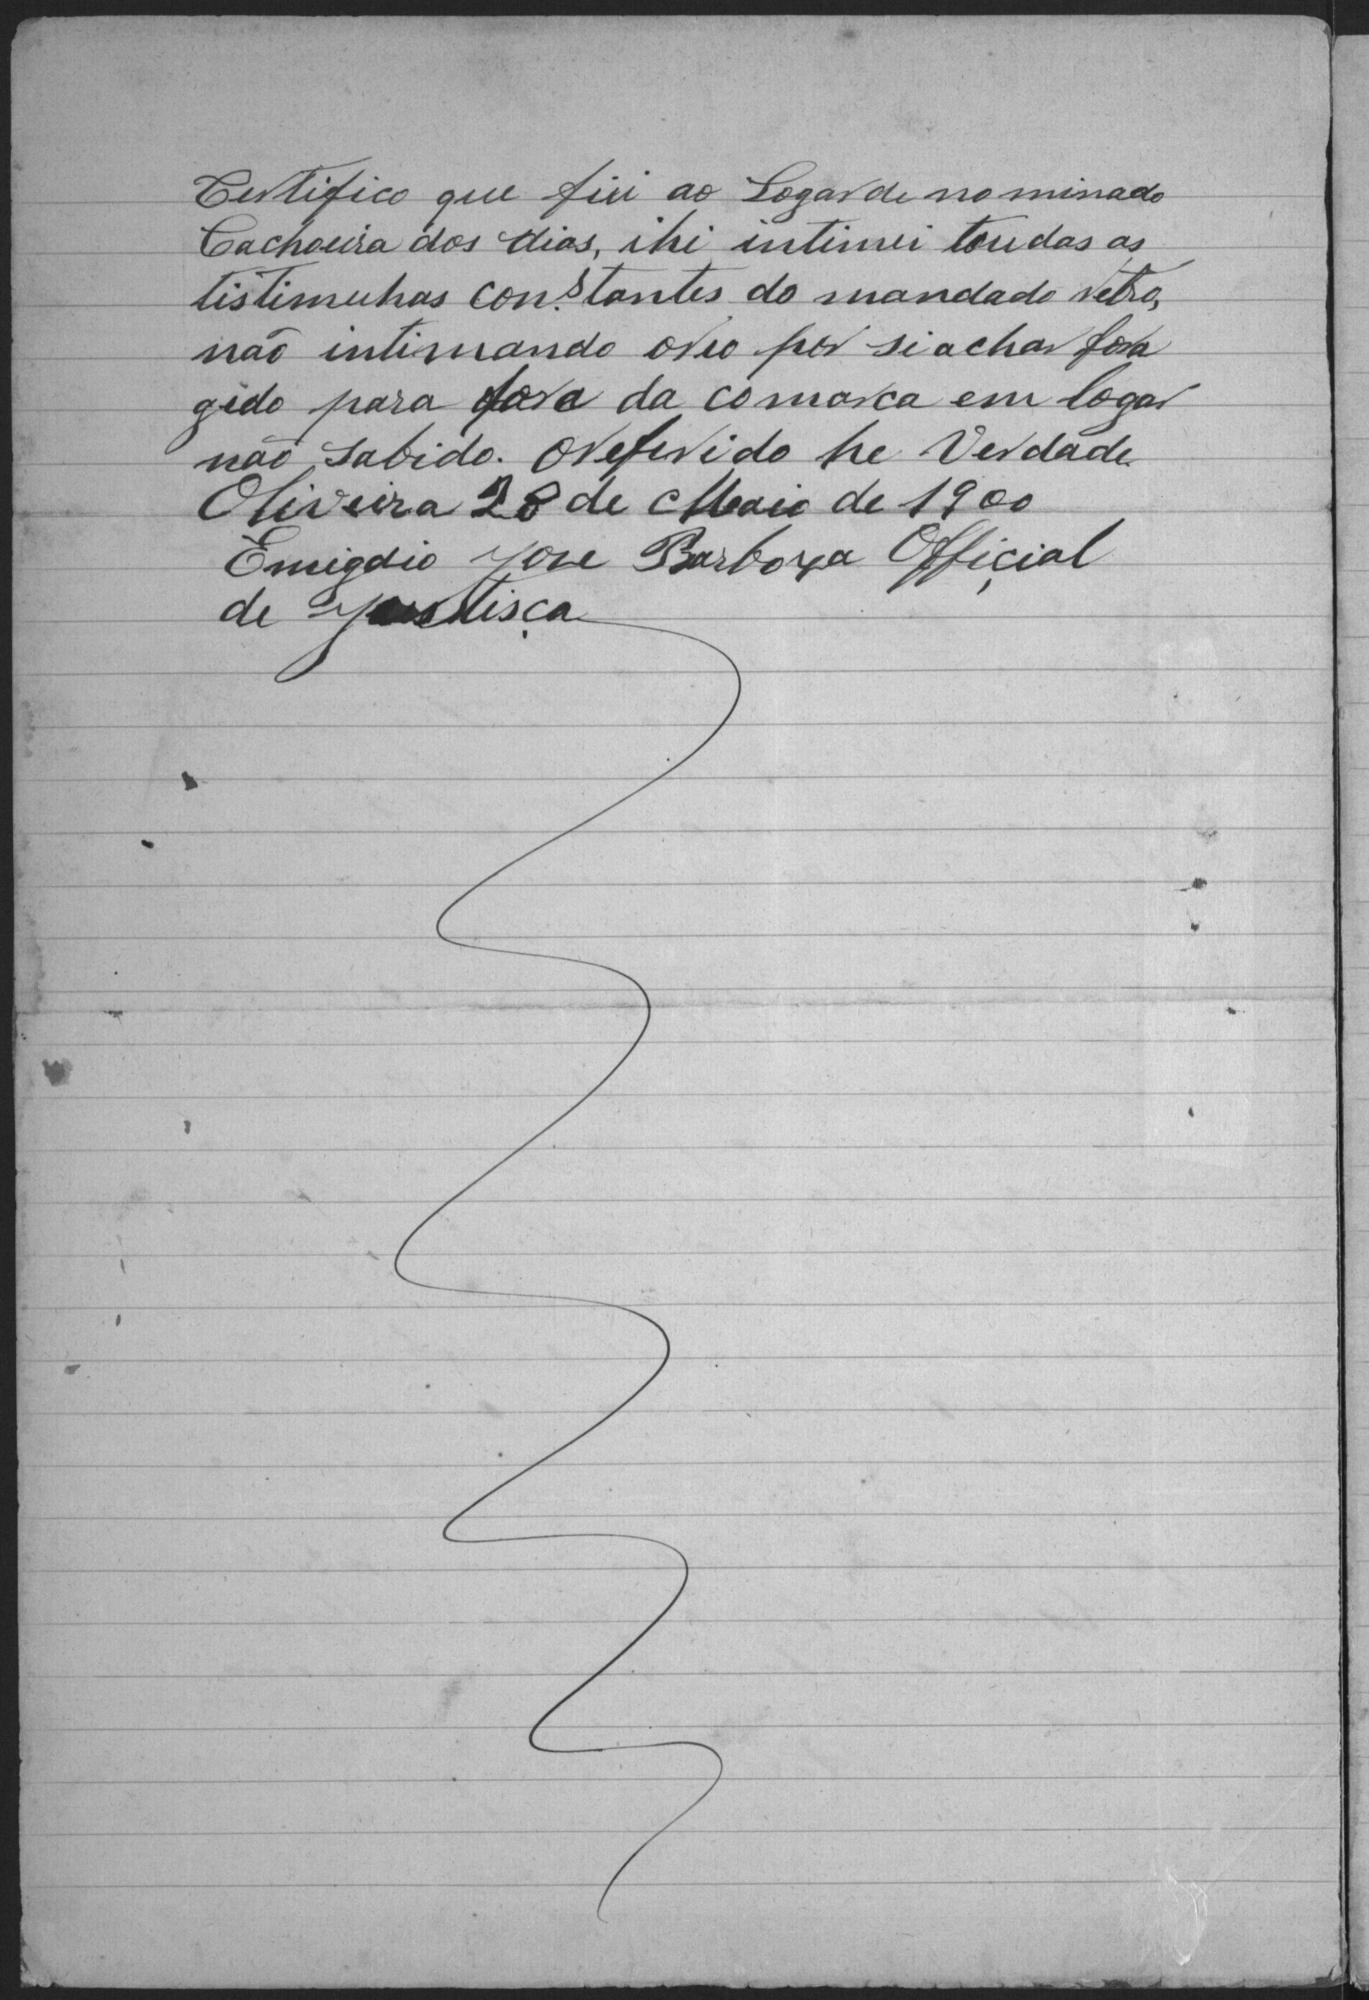 Certifico que fui ao Logar de nominado
Cachoeira dos Dias, ihi intimei toudas as
tistimuhas constantes do mandado retro,
não intimando oreo por si achar fora
gido para fora da comarca em logar
não sabido. Oreferido he Verdade
Oliveira 28 de Maio de 1900
Emigdio Jose Barboza Official
de Justisça